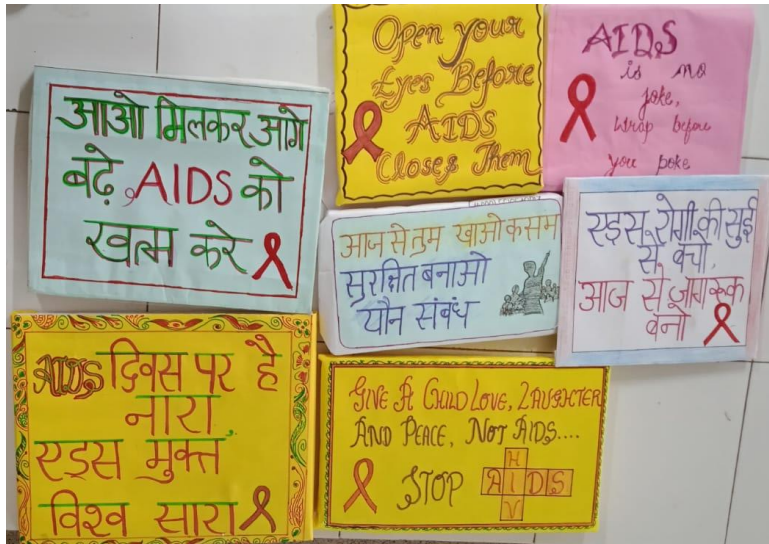 आओ मिलकर आगे
बढ़े, AIDS को
खत्म करे
Open your
Eyes Before
AIDS
Closes Them
AIDS
is no
joke,
Wrap before
you poke
आज से तुम खाओ कसम
सुरक्षित बनाओ
यौन संबंध
एड्स रोगी की सुई
से बचो,
आज से जागरूक
बनो
AIDS दिवस पर है
नारा,
एड्स मुक्त
विश्व सारा
GIVE A CHILD LOVE, LAUGHTER
AND PEACE, NOT AIDS....
STOP AIDS
HIV